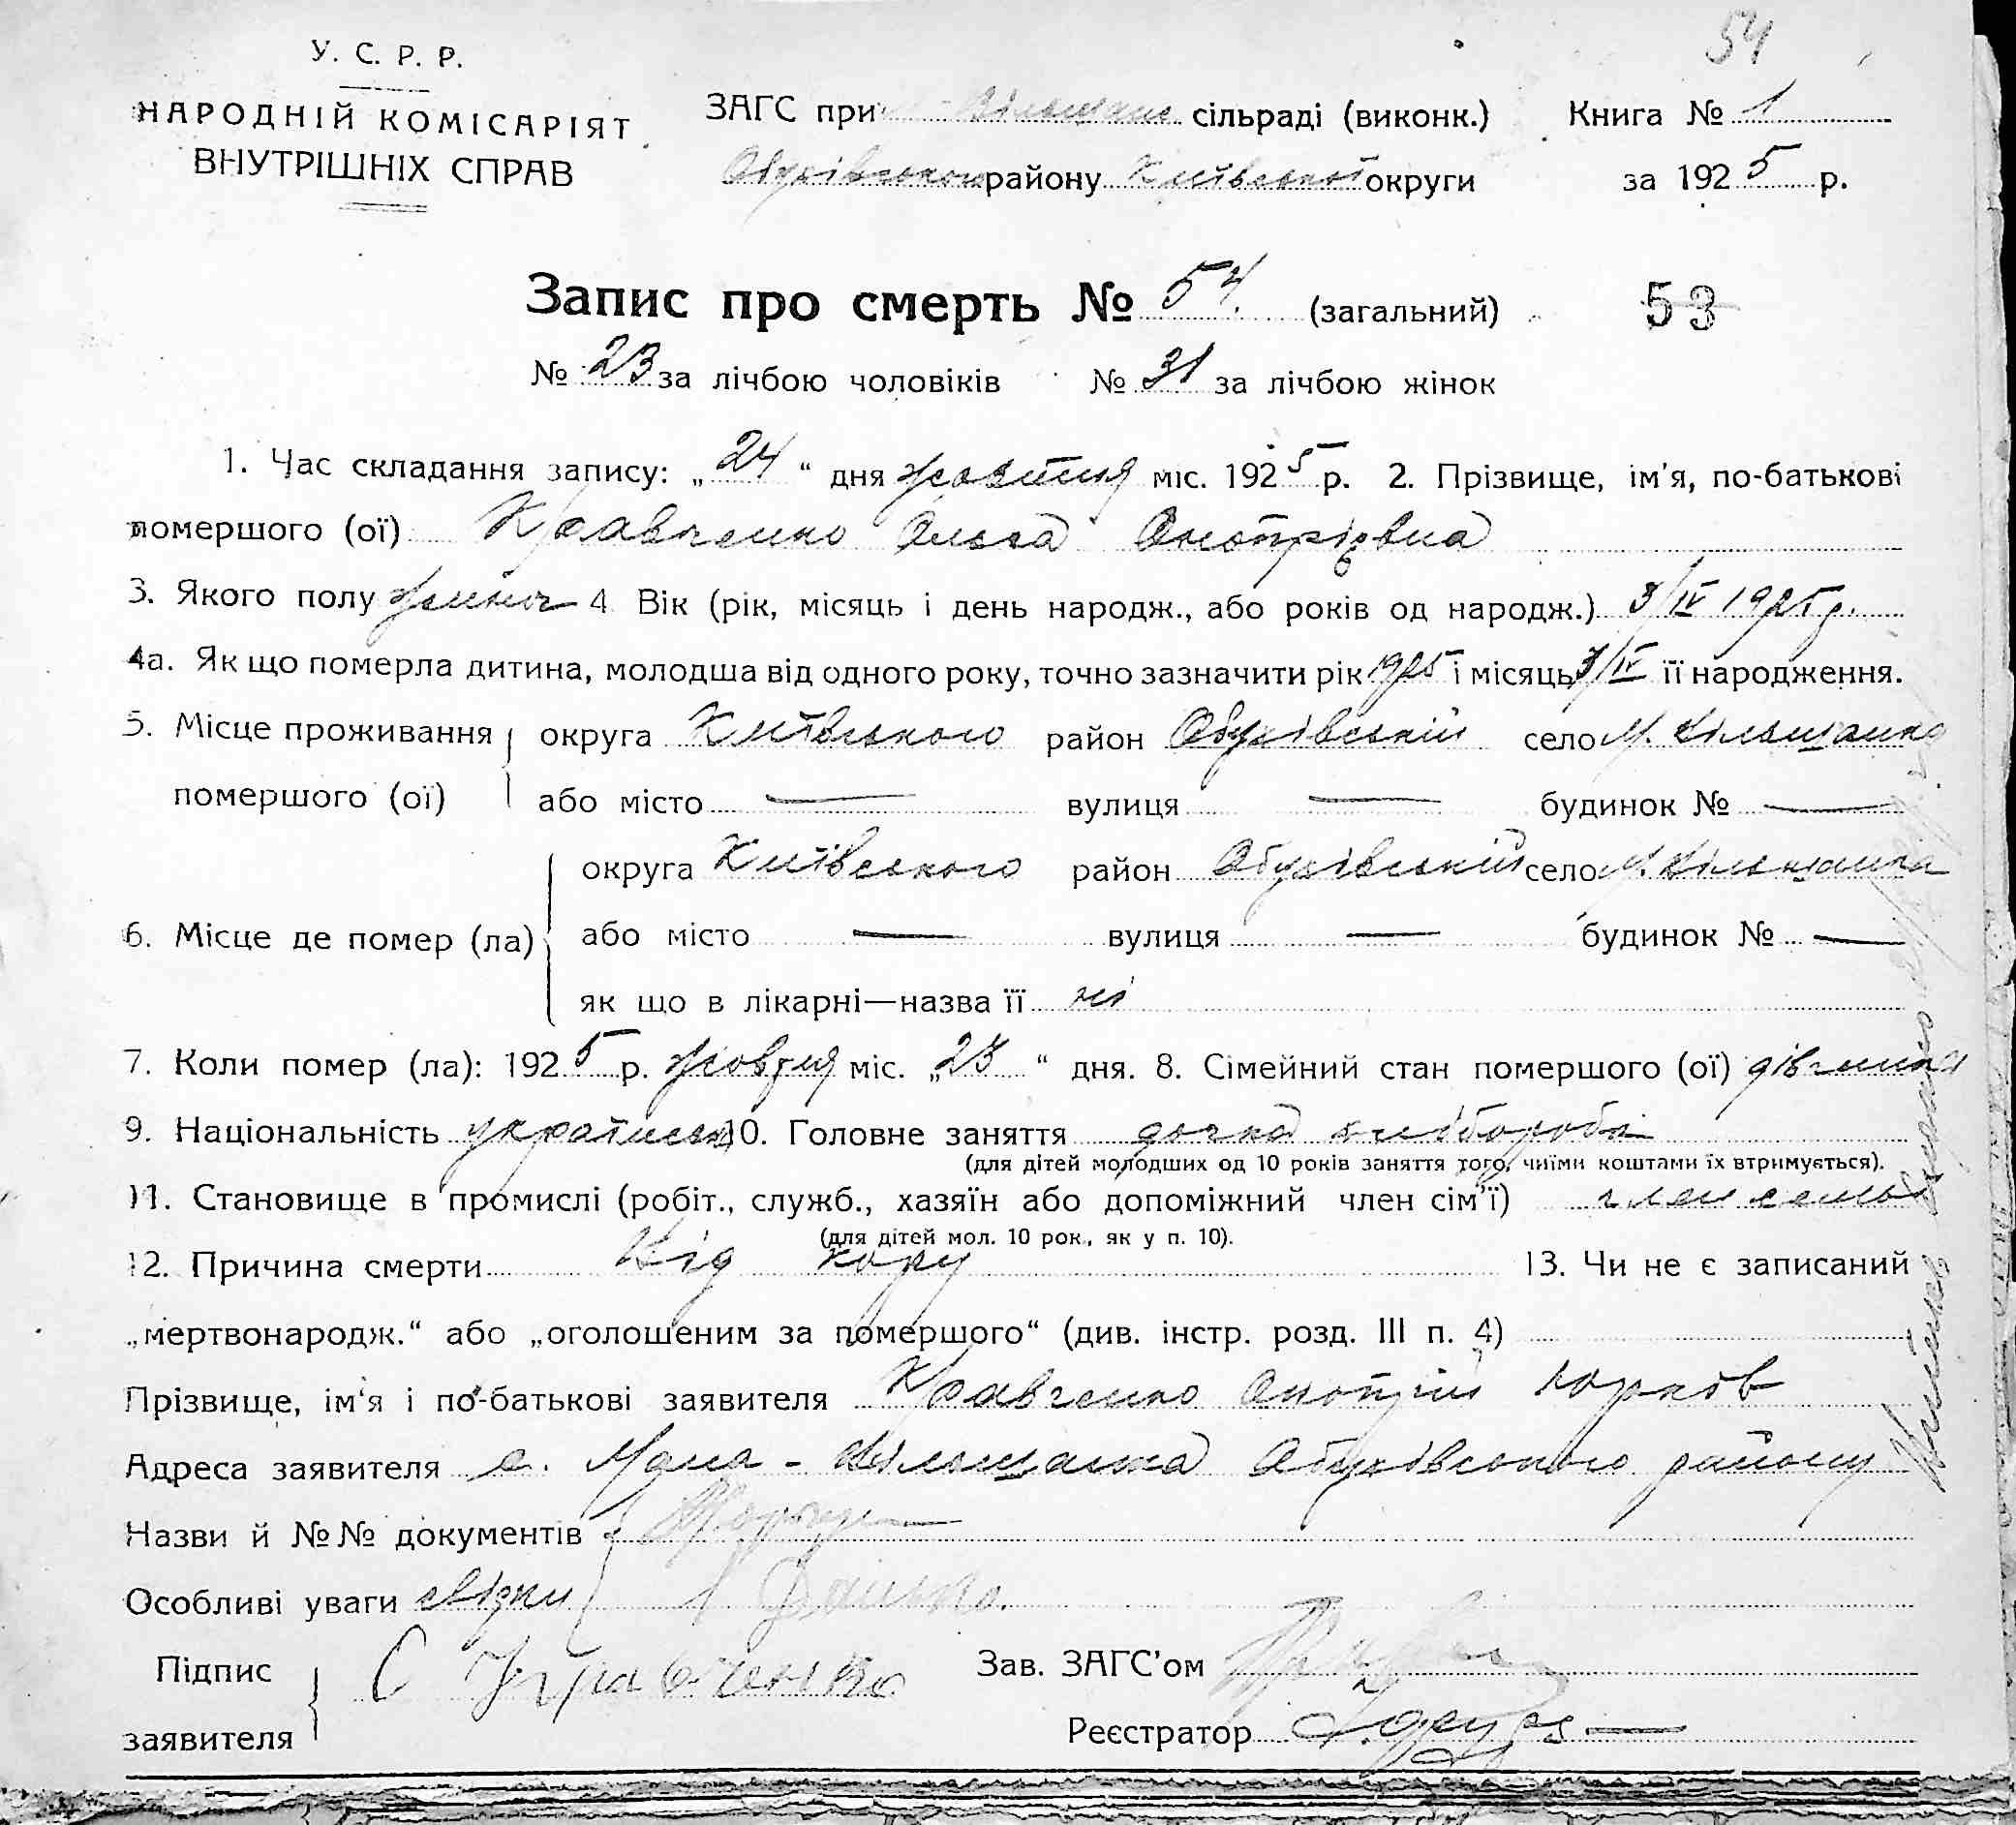 54
У. С. Р. Р.
НАРОДНІЙ КОМІСАРІЯТ
ВНУТРІШНІХ СПРАВ
ЗАГС при Вільшанс сільраді (виконк.)
Обухівського району Київської округи
Книга № 1
за 1925 р.
Запис про смерть № 54. (загальний)
53
№ 23 за лічбою чоловіків № 31 за лічбою жінок
1. Час складання запису: „24“ дня жовтня міс. 1925 р. 2. Прізвище, ім'я, по-батькові
помершого (ої) Кравченко Ольга Онопріівна
3. Якого полу жіноч 4. Вік (рік, місяць і день народж., або років од народж.) 3/IV 1925 р.
4а. Як що померла дитина, молодша від одного року, точно зазначити рік 1925 і місяць 3/IV її народження.
5. Місце проживання округа Київського район Обухівський село М. Вільшанка
помершого (ої) або місто — вулиця — будинок № —
округа Київського район Обухівський село М. Вільшанка
6. Місце де помер (ла) або місто — вулиця — будинок № —
як що в лікарні—назва її ні
7. Коли помер (ла): 1925 р. жовтня міс. „23“ дня. 8. Сімейний стан помершого (ої) дівчина
9. Національність українська 10. Головне заняття дочка хлібороба
(для дітей молодших од 10 років заняття того, чиїми коштами їх втримується).
11. Становище в промислі (робіт., служб., хазяїн або допоміжний член сім'ї) член семьї
(для дітей мол. 10 рок., як у п. 10).
12. Причина смерти Від кору 13. Чи не є записаний
„мертвонародж.“ або „оголошеним за помершого“ (див. інстр. розд. III п. 4)
Прізвище, ім'я і по-батькові заявителя Кравченко Онопрій
Адреса заявителя с. Мала - Вільшанка Обухівського району
Назви й №№ документів
Особливі уваги свідки
Підпис С Кравченко Зав. ЗАГС'ом
заявителя Реєстратор